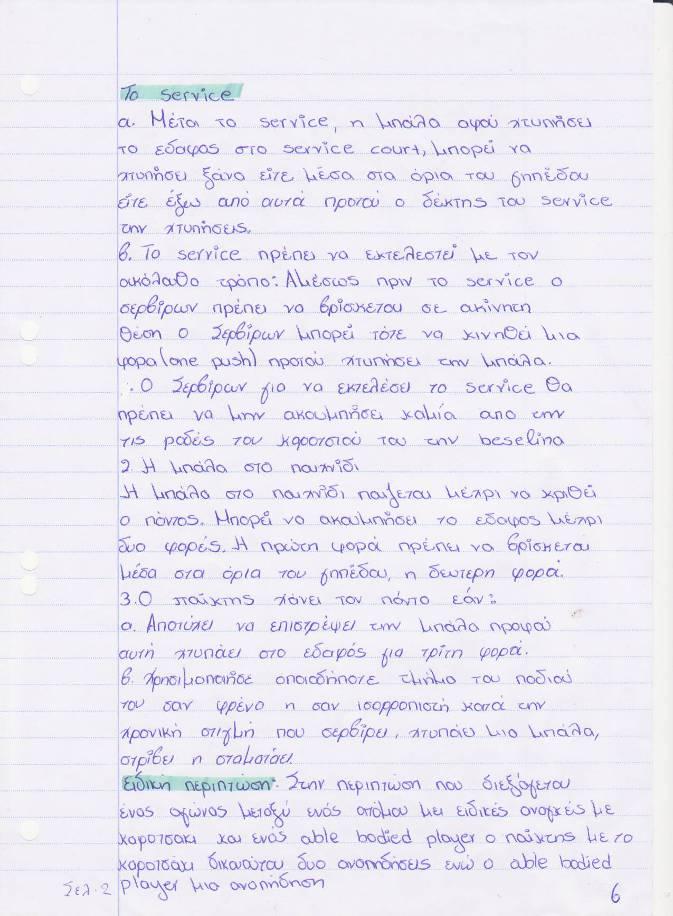 Το service
α. Μέτα το service, η μπάλα αφού χτυπήσει
το εδαφος στο service court, μπορεί να
χτυπήσει ξάνα είτε μέσα στα όρια του γηπέδου
είτε έξω από αυτά προτού ο δέκτης του service
την χτυπήσεις.
β. Το service πρέπει να εκτελεστεί με τον
ακόλαθο τρόπο: Αμέσως πριν το service ο
σερβίρων πρέπει να βρίσκεται σε ακίνητη
θέση ο Σερβίρων μπορεί τότε να κινηθεί μια
φορα (one push) προτού χτυπήσει την μπάλα.
. Ο Σερβίρων για να εκτελέσει το service θα
πρέπει να μην ακουμπήσει καμία απο την
τις ροδές του καροτσιού του την beselina
2. Η μπάλα στο παιχνίδι
Η μπάλα στο παιχνίδι παίζεται μέχρι να κριθεί
ο πόντος. Μπορεί να ακουμπήσει το εδαφος μέχρι
δυο φορές. Η πρώτη φορά πρέπει να βρίσκεται
μέσα στα όρια του γηπέδου, η δευτερη φορά.
3. Ο παίχτης χάνει τον πόντο εάν:
α. Αποτύχει να επιστρέψει την μπάλα προφού
αυτή χτυπάει στο εδαφός για τρίτη φορά.
β. Χρησιμοποιήσε οποιαδήποτε τμήμα του ποδιού
του σαν φρένο η σαν ισορροπιστή κατά την
χρονική στιγμή που σερβίρει, χτυπάει μια μπάλα,
στρίβει η σταματάει
Ειδική περιπτωση: Στην περιπτωση που διεξάγεται
ένας αγώνας μεταξύ ενός ατόμου μει ειδικές αναγκές με
καροτσακι και ενός able bodied player ο παίχτης με το
καροτσάκι δικαιούται δυο αναπηδήσεις ενώ ο able bodied
player μια αναπήδηση
Σελ. 2
6